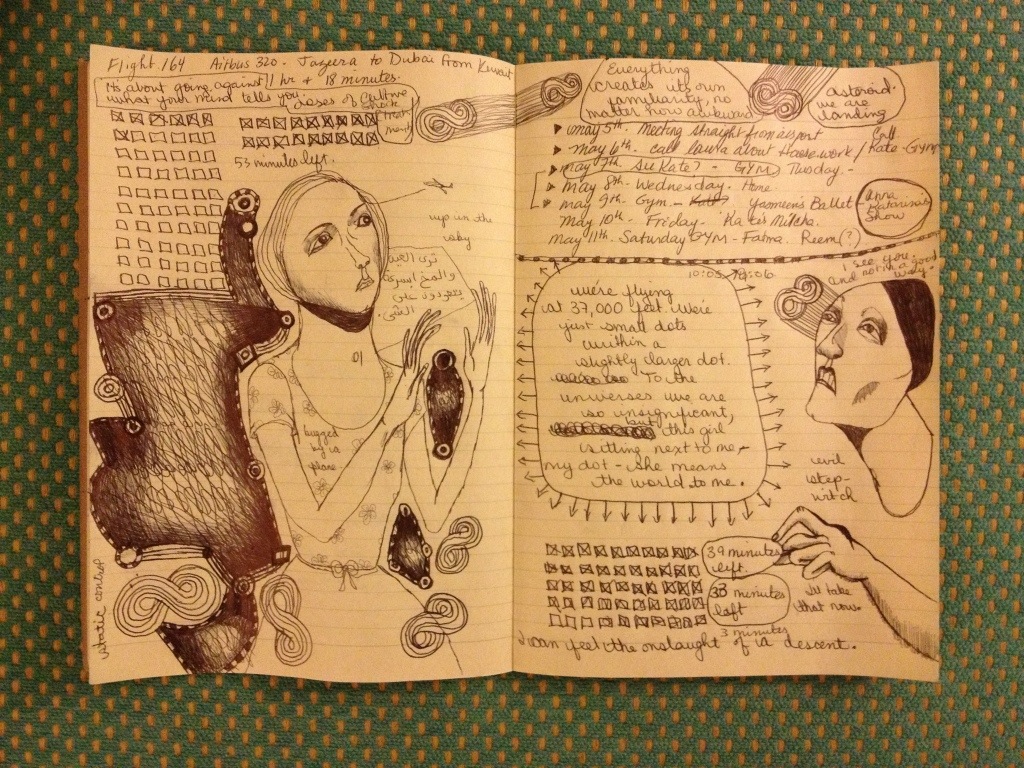 Flight 164 Airbus 320 - Jazeera to Dubai from Kuwait
It's about going against
what your mind tells you.
1 hr + 18 minutes.
doses of culture
shock
treat
ment
53 minutes left.
up in the
sky
ترى العين
والمخ اسرع
يتعودون على
الشي
bugged
by a
plane.
static control
Everything
creates its own
familiarity, no
matter how awkward
asteroid.
we are
landing
may 5th. Meeting straight from airport
may 6th. call laura about Housework / Call
Kate - GYM
may 7th. See Kate? - GYM Tuesday -
may 8th. Wednesday. Home
may 9th. Gym - Yasmeen's Ballet
Show
may 10th. Friday. Kate's
may 11th. Saturday GYM - Fatma. Reem(?)
10:05
I see you
and not in a good
way.
we're flying
at 37,000 feet. We're
just small dots
within a
slightly larger dot.
To the
universes we are
so insignificant,
but this girl
sitting next to me,
my dot - she means
the world to me.
evil
step-
witch
39 minutes
left.
33 minutes
left
I'll take
that now.
3 minutes
I can feel the onslaught of a descent.